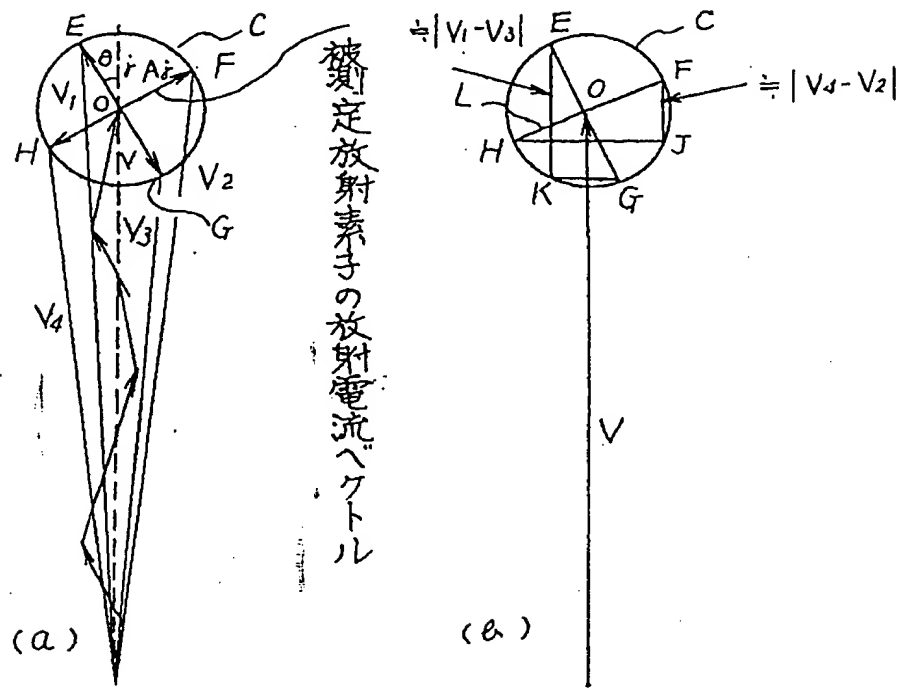 E
C
θ
ṙ Aṙ
F
V1
O
H
V
V2
G
V3
V4
被測定放射素子の放射電流ベクトル
(a)
≒|V1-V3|
E
C
O
F
L
≒|V4-V2|
H
J
K
G
V
(b)